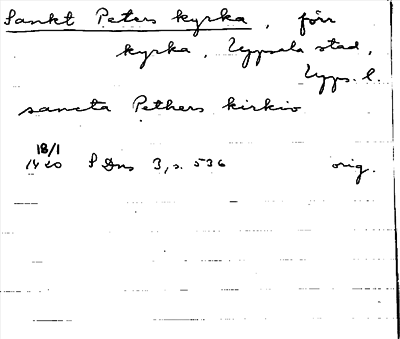 Sankt Peters kyrka, förr
kyrka, Uppsala stad,
Upps. l.
sancta Pethers kirkio
18/1
1420 SDns 3, s. 536 orig.